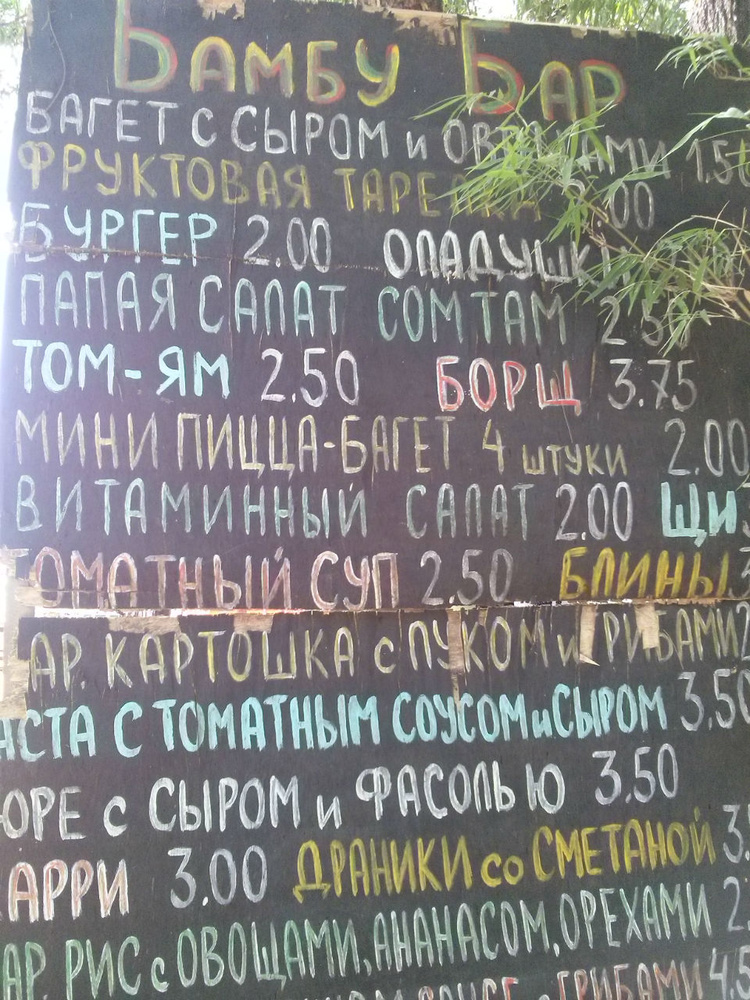 БАМБУ БАР
БАГЕТ С СЫРОМ и ОВОЩАМИ 1.50
ФРУКТОВАЯ ТАРЕЛКА
БУРГЕР 2.00 ОЛАДУШКИ
ПАПАЯ САЛАТ СОМ ТАМ 2.50
ТОМ-ЯМ 2.50 БОРЩ 3.75
МИНИ ПИЦЦА-БАГЕТ 4 штуки 2.00
ВИТАМИННЫЙ САЛАТ 2.00 ЩИ
ТОМАТНЫЙ СУП 2.50 БЛИНЫ
АР. КАРТОШКА С ЛУКОМ и ГРИБАМИ
АСТА С ТОМАТНЫМ СОУСОМ и СЫРОМ 3.50
ЮРЕ С СЫРОМ и ФАСОЛЬЮ 3.50
АРРИ 3.00 ДРАНИКИ со СМЕТАНОЙ
АР. РИС с ОВОЩАМИ, АНАНАСОМ, ОРЕХАМИ
ГРИБАМИ 4.5